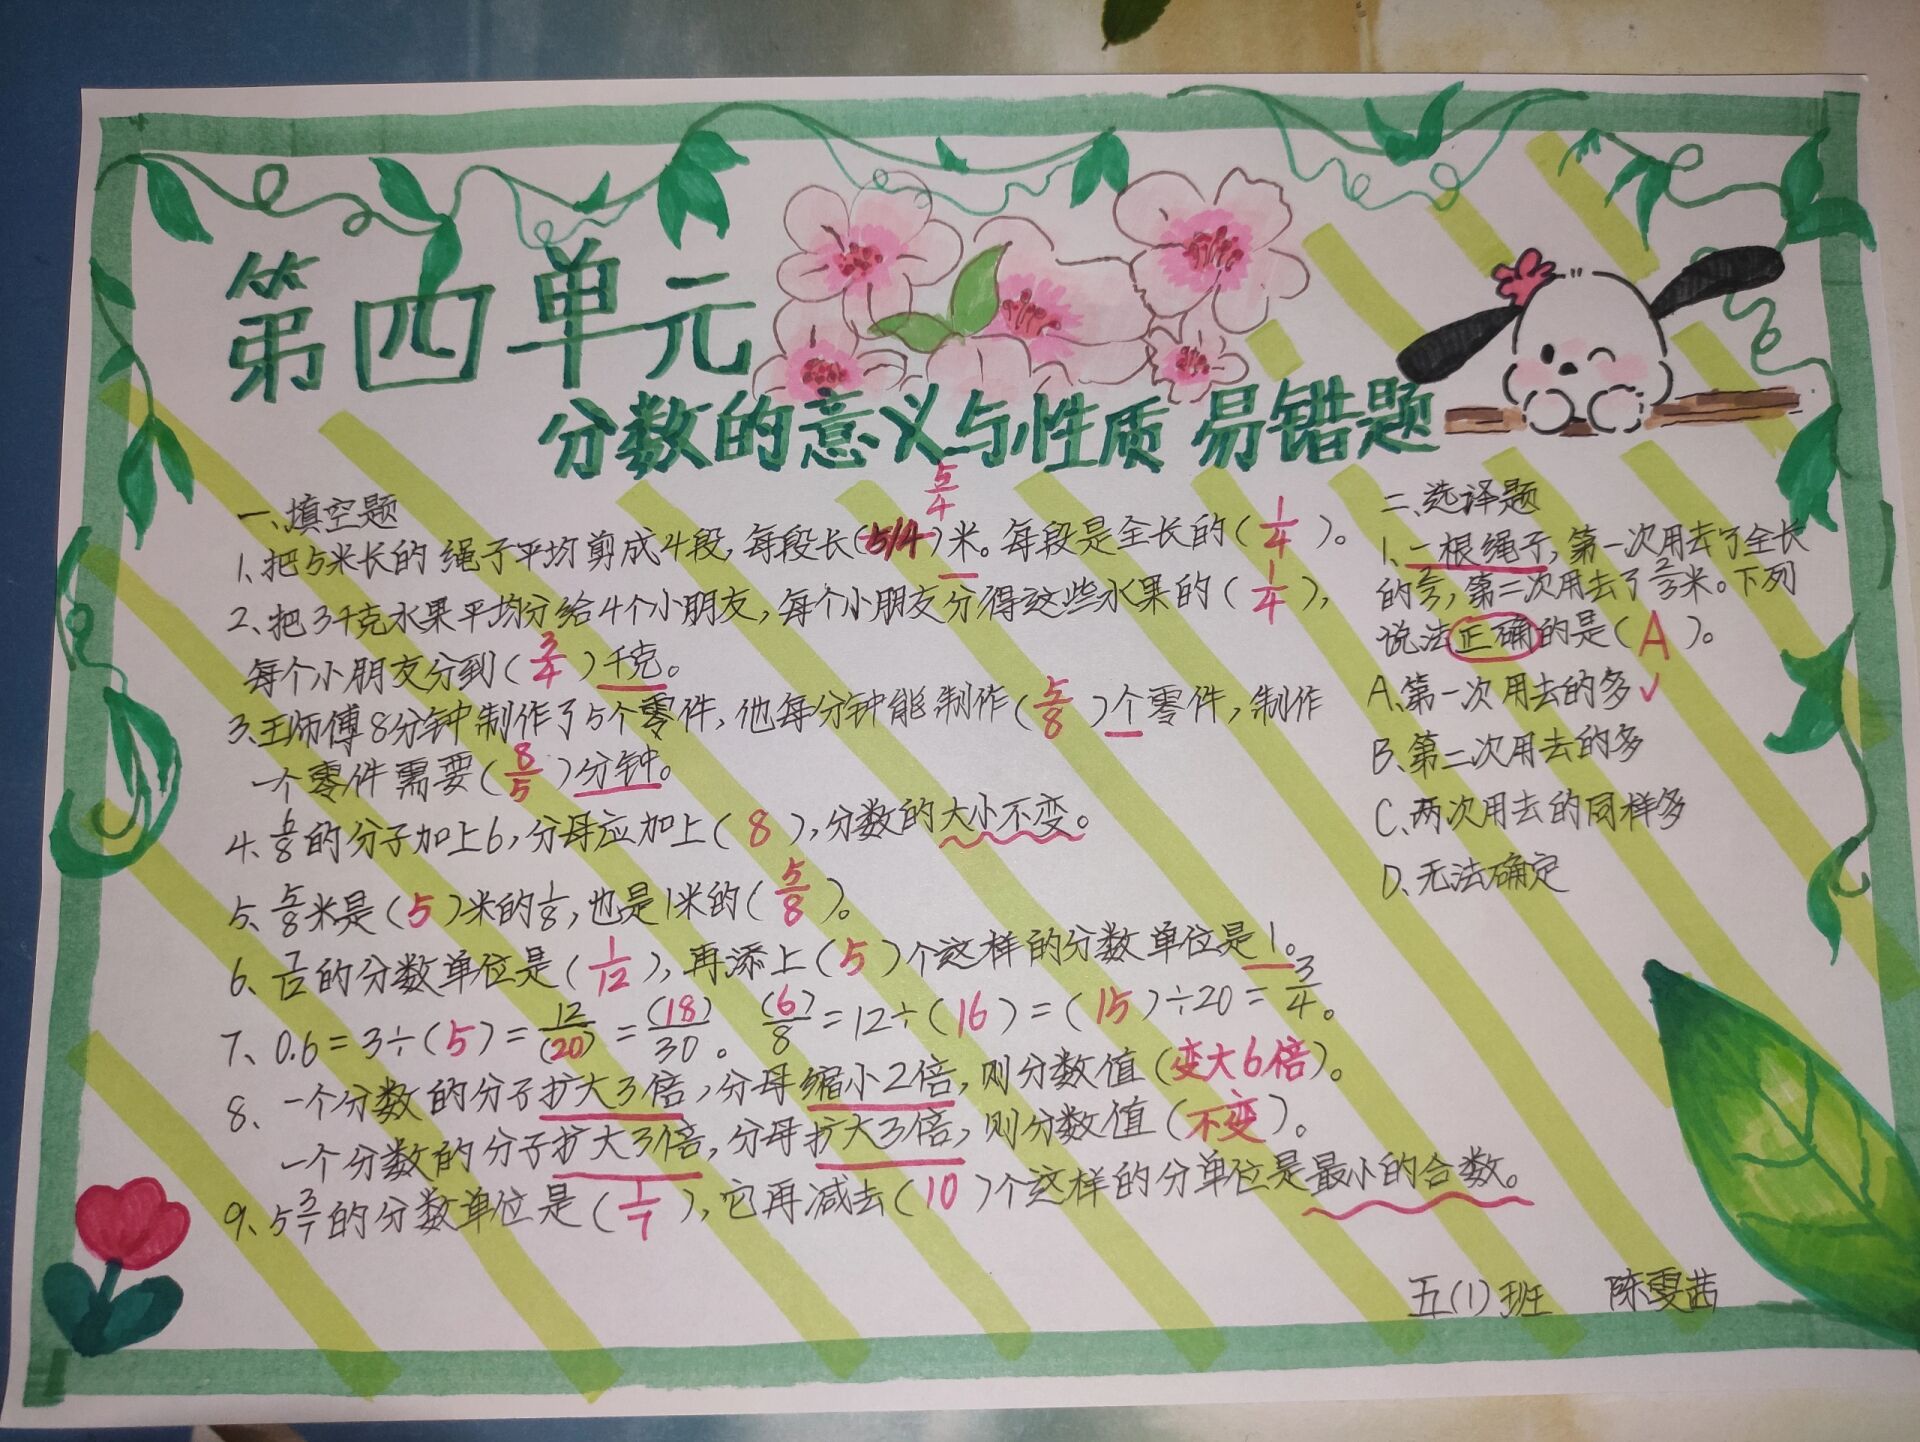 第四单元
分数的意义与性质 易错题
一、填空题
5/4
1、把5米长的绳子平均剪成4段,每段长(5/4)米。每段是全长的(1/4)。
2、把3千克水果平均分给4个小朋友,每个小朋友分得这些水果的(1/4),
每个小朋友分到(3/4)千克。
3、王师傅8分钟制作了5个零件,他每分钟能制作(5/8)个零件,制作
一个零件需要(8/5)分钟。
4、6/8的分子加上6,分母应加上(8),分数的大小不变。
5、5/8米是(5)米的1/8,也是1米的(5/8)。
6、7/12的分数单位是(1/12),再添上(5)个这样的分数单位是1。
7、0.6=3÷(5)=12/(20)=(18)/30。 (6)/8=12÷(16)=(15)÷20=3/4。
8、一个分数的分子扩大3倍,分母缩小2倍,则分数值(变大6倍)。
一个分数的分子扩大3倍,分母扩大3倍,则分数值(不变)。
9、5 3/7的分数单位是(1/7),它再减去(10)个这样的分单位是最小的合数。
二、选译题
1、一根绳子,第一次用去了全长
的,第二次用去了2/3米。下列
说法正确的是(A)。
A、第一次用去的多✓
B、第二次用去的多
C、两次用去的同样多
D、无法确定
五(1)班 陈雯茜